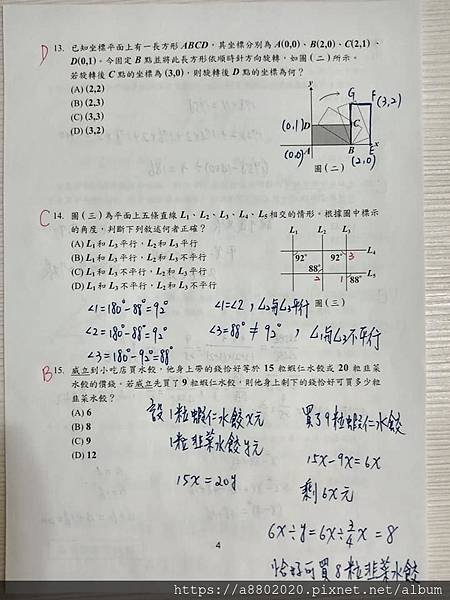 D 13. 已知坐標平面上有一長方形 ABCD，其坐標分別為 A(0,0)、B(2,0)、C(2,1)、
D(0,1)。今固定 B 點並將此長方形依順時針方向旋轉，如圖(二)所示。
若旋轉後 C 點的坐標為 (3,0)，則旋轉後 D 點的坐標為何？
(A) (2,2)
(B) (2,3)
(C) (3,3)
(D) (3,2)
y
G F (3,2)
(0,1) D C
A B E x
(0,0) (2,0)
圖(二)
C 14. 圖(三)為平面上五條直線 L1、L2、L3、L4、L5 相交的情形。根據圖中標示
的角度，判斷下列敘述何者正確？
(A) L1 和 L3 平行，L2 和 L3 平行
(B) L1 和 L3 平行，L2 和 L3 不平行
(C) L1 和 L3 不平行，L2 和 L3 平行
(D) L1 和 L3 不平行，L2 和 L3 不平行
L1 L2 L3
92° 92° 3 L4
88° 2 1 L5
圖(三)
∠1=180°-88°=92° ∠1=∠2，L2與L3平行
∠2=180°-88°=92° ∠3=88°≠92°，L1與L3不平行
∠3=180°-92°=88°
B 15. 威立到小吃店買水餃，他身上帶的錢恰好等於 15 粒蝦仁水餃或 20 粒韭菜
水餃的價錢。若威立先買了 9 粒蝦仁水餃，則他身上剩下的錢恰好可買多少粒
韭菜水餃？
(A) 6
(B) 8
(C) 9
(D) 12
設1粒蝦仁水餃x元
1粒韭菜水餃y元
15x=20y
買了9粒蝦仁水餃
15x-9x=6x
剩6x元
6x÷y=6x÷3/4x=8
恰好可買8粒韭菜水餃
4
https://a8802020.pixnet.net/album